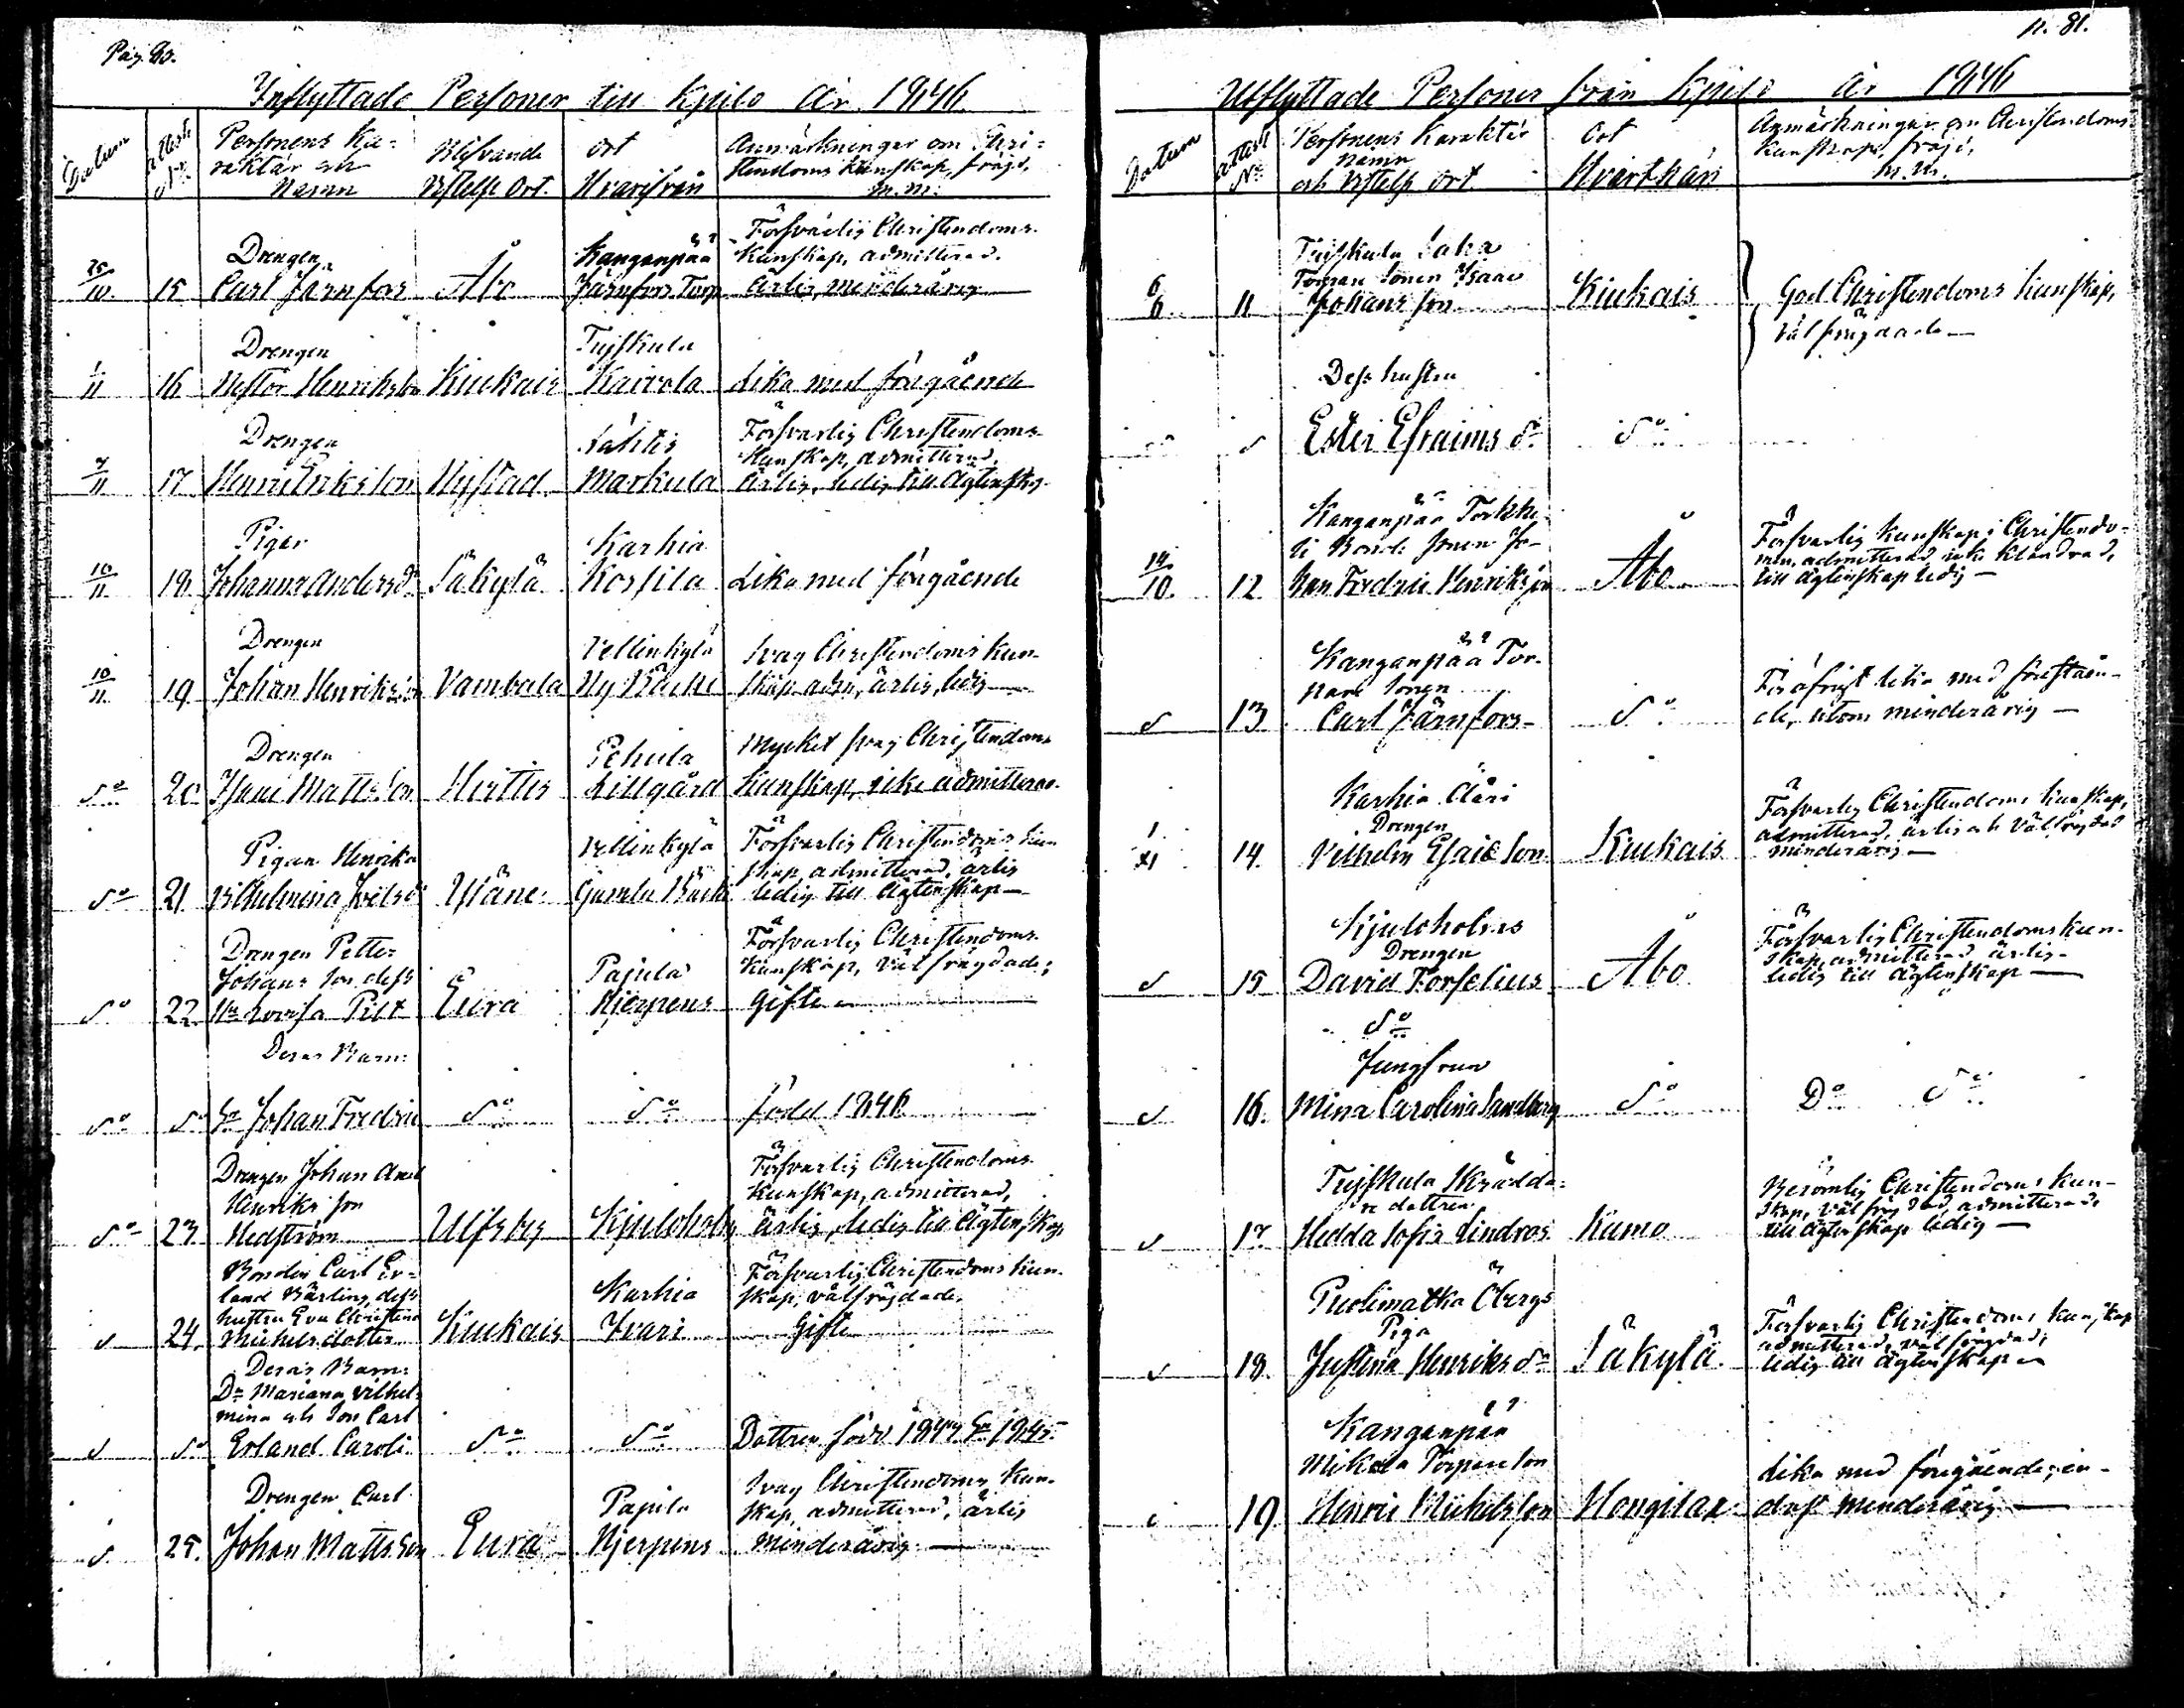 Pag. 80.
Inflyttade Personer till Kjulo År 1846
Datum
Attest No
Personens Ka-
raktär och
Namn
Blifvande
Vistelse Ort.
Ort
Hvarifrån
Anmärkningar om Chri-
stendoms Kunskap, fräjd,
m.m.
25/10. 15
Drengen
Carl Järnfors
Åbo
Kanganpää
Järnfors Torp
Försvarlig Christendoms
Kunskap, admitterad.
ärlig, minderårig
1/11 16
Drengen
Nestor Henriksson
Kiukais
Tujskula
Kaivola
Lika med föregående
7/11 17
Drengen
Henric Eriksson
Nystad
Lähtis
Markula
Försvarlig Christendoms
Kunskap, admitterad,
ärlig, ledig till Ägtenskap
10/11 18
Pigan
Johanna Andersdr
Säkylä
Karhia
Kossila
Lika med föregående
10/11 19
Drengen
Johan Henriksson
Vambala
Vellinkylä
Ny Bäcki
Svag Christendoms kun-
skap adm, ärlig, ledig
do 20
Drengen
Isaac Mattsson
Hvittis
Pehula
Lillgård
Mycket svag Christendoms
kunskap, icke admitterad.
do 21
Pigan Henrika
Vilhelmina Joelsdr
Yläne
Vellinkylä
Gamla Bäcki
Försvarlig Christendoms kun
skap, admitterad, ärlig
ledig till Ägtenskap
do 22
Drengen Petter
Johansson dess
Hu Lovisa Pilt
Eura
Pajula
Hjerpens
Försvarlig Christendoms
kunskap, välfrägdade;
Gifte
Deras Barn:
do do Sn Johan Fredric do do född 1846
do 23
Drengen Johan Axel
Henriksson
Hedström
Ulfsby
Kjuloholm
Försvarlig Christendoms
Kunskap, admitterad,
ärlig, ledig till Ägtenskap
d 24.
Bonden Carl Er-
land Bärling, dess
hustru Eva Christina
Michelsdotter
Kiukais
Karhia
Ivari
Försvarlig Christendoms kun-
skap, välfrägdade.
Gifte
Deras Barn:
Dr Mariana Vilhel-
mina och Son Carl
d do Erland Caroli do do Dottren född 1844. Sn 1845
d 25.
Drengen Carl
Johan Mattsson
Eura
Pajula
Hjerpens
Svag Christendoms Kun-
skap, admitterad, ärlig
minderårig
p. 81.
Utflyttade Personer från Kjulo År 1846
Datum
Attest No
Personens Karaktér
Namn
och Vistelse Ort
Ort
Hvarthän
Anmärkningar om Christendoms
kunskap, frägd,
m.m.
6/6 11
Tujskula Laka
Torpare Sonen Isaac
Johansson
Kiukais
God Christendoms kunskap,
välfrägdade
Dess hustru
d Ester Efraims dr do
14/10. 12
Kanganpää Torkke-
li Bonde sonen Jo-
han Fredric Henriksson
Åbo
Försvarlig kunskap i Christendo-
men, admitterad icke klandrad,
till ägtenskap ledig
d 13
Kanganpää Tor-
pare sonen
Carl Järnfors
do
För öfrigt lika med föreståen-
de, utom minderårig
1/11 14.
Karhia Ääri
Drengen
Vilhelm Esaias Son
Kiukais
Försvarlig Christendoms kunskap,
admitterad, ärlig och välfrägdad
minderårig
d 15
Kjuloholms
Drengen
David Forselius
Åbo
Försvarlig Christendoms kun-
skap, admitterad ärlig-
ledig till Ägtenskap
d 16.
do
Jungfrun
Mina Carolina Sandberg
do
Do do
d 17
Tujskula Skrädda-
re dottren
Hedda Sofia Lindros
Kumo
Berömlig Christendoms kun-
skap, välfrägdad, admitterad,
till ägtenskap ledig
d 18.
Puolimatka Öbergs
Piga
Justina Henriks dr
Säkylä
Försvarlig Christendoms kunskap
admitterad, välfrägdad;
ledig till ägtenskap
d 19
Kanganpää
Mikola Torpareson
Henric Michelsson
Hongilax
Lika med föregående; en-
dast minderårig